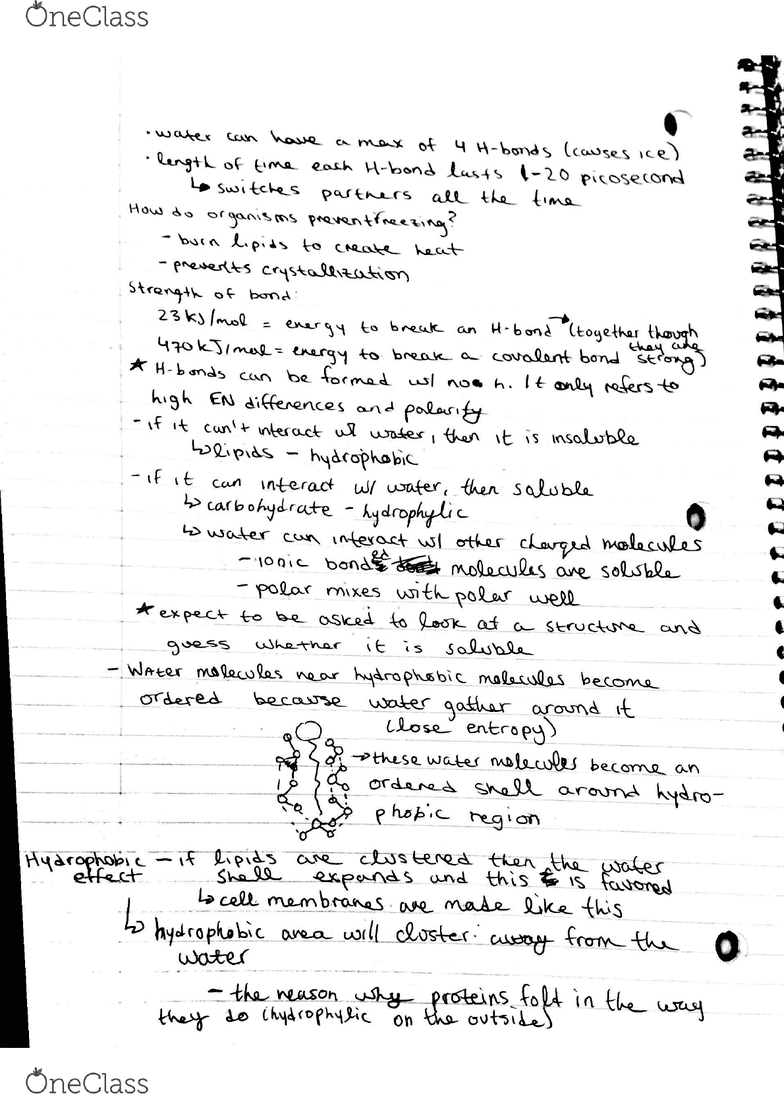 OneClass
• water can have a max of 4 H-bonds (causes ice)
• length of time each H-bond lasts 1-20 picosecond
↳ switches partners all the time
How do organisms prevent freezing?
- burn lipids to create heat
- prevents crystallization
Strength of bond:
23 kJ/mol = energy to break an H-bond → (together though they are strong)
470 kJ/mol = energy to break a covalent bond
* H-bonds can be formed w/ no h. It only refers to
high EN differences and polarity
- if it can't interact w/ water, then it is insoluble
↳ lipids - hydrophobic
- if it can interact w/ water, then soluble
↳ carbohydrate - hydrophylic
↳ water can interact w/ other charged molecules
- ionic bonded molecules are soluble
- polar mixes with polar well
* expect to be asked to look at a structure and
guess whether it is soluble
- Water molecules near hydrophobic molecules become
ordered because water gather around it
(lose entropy)
→ these water molecules become an
ordered shell around hydro-
phobic region
Hydrophobic effect - if lipids are clustered then the water
shell expands and this is favored
↳ cell membranes are made like this
↳ hydrophobic area will cluster away from the
water
- the reason why proteins fold in the way
they do (hydrophylic on the outside)
OneClass